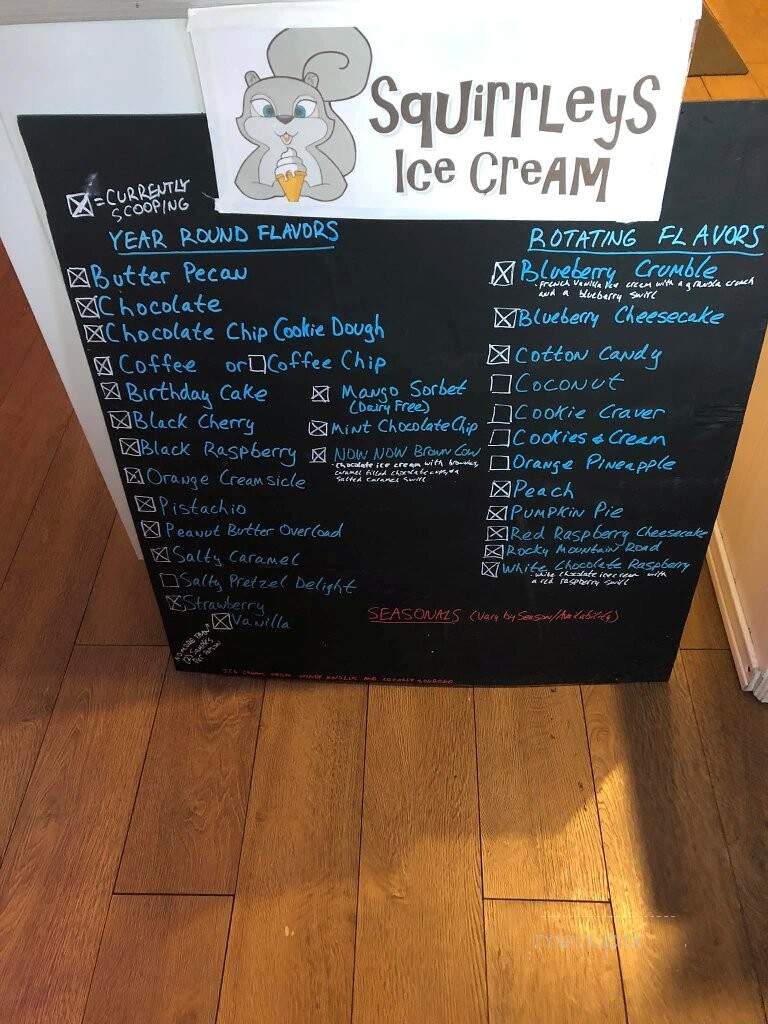 Squirrleys
Ice Cream
= CURRENTLY
SCOOPING
YEAR ROUND FLAVORS
Butter Pecan
Chocolate
Chocolate Chip Cookie Dough
Coffee or Coffee Chip
Birthday Cake
Black Cherry
Black Raspberry
Orange Creamsicle
Pistachio
Peanut Butter Overload
Salty Caramel
Salty Pretzel Delight
Strawberry
Vanilla
Mango Sorbet
(Dairy Free)
Mint Chocolate Chip
Now Now Brown Cow
chocolate ice cream with brownies,
caramel filled chocolate cups, &
salted caramel swirl
ROTATING FLAVORS
Blueberry Crumble
French vanilla ice cream with a granola crunch
and a blueberry swirl
Blueberry Cheesecake
Cotton Candy
Coconut
Cookie Craver
Cookies & Cream
Orange Pineapple
Peach
Pumpkin Pie
Red Raspberry Cheesecake
Rocky Mountain Road
White Chocolate Raspberry
white chocolate ice cream with
a red raspberry swirl
SEASONALS (Vary by Season/Availability)
NO MORE THAN
(2) Samples
Per Person
ICE CREAM FROM AND LOCALLY SOURCED